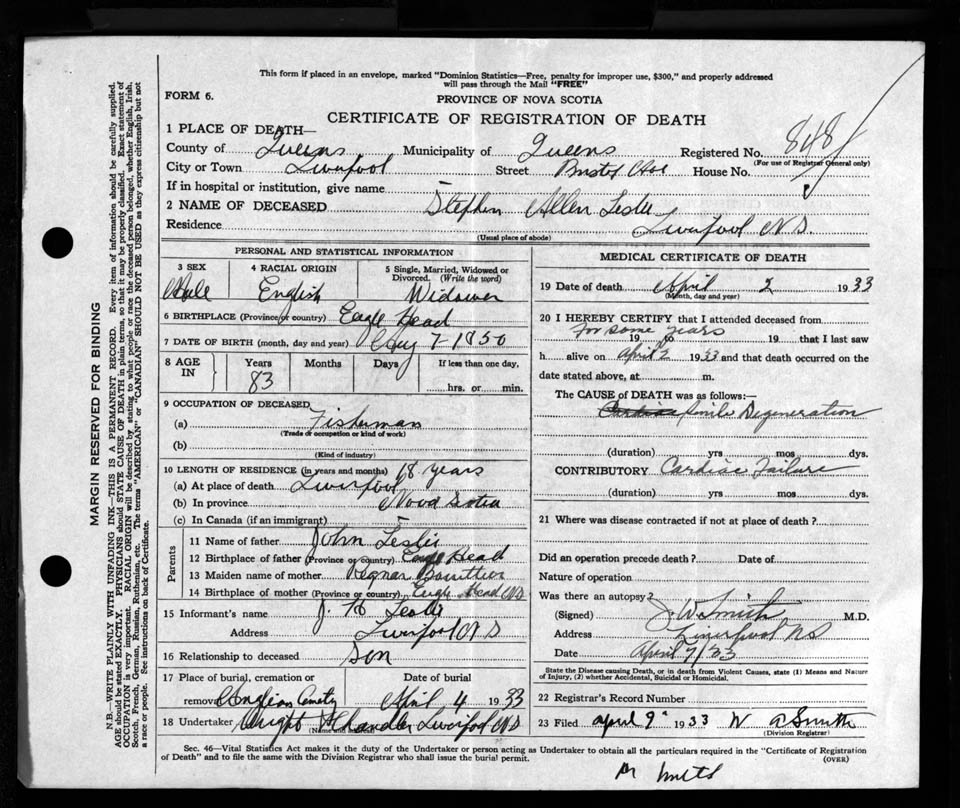 This form if placed in an envelope, marked "Dominion Statistics—Free, penalty for improper use, $300," and properly addressed
will pass through the Mail "FREE"
FORM 6.
PROVINCE OF NOVA SCOTIA
CERTIFICATE OF REGISTRATION OF DEATH
1 PLACE OF DEATH—
County of Queens Municipality of Queens Registered No. 848
(For use of Registrar General only)
City or Town Liverpool Street Bristol Ave House No.
If in hospital or institution, give name
2 NAME OF DECEASED Stephen Allen Leslie
Residence Liverpool N S.
(Usual place of abode)
PERSONAL AND STATISTICAL INFORMATION
3 SEX 4 RACIAL ORIGIN 5 Single, Married, Widowed or
Divorced. (Write the word)
Male English Widower
6 BIRTHPLACE (Province or country) Eagle Head
7 DATE OF BIRTH (month, day and year) 7-1850
8 AGE IN Years Months Days If less than one day,
83 hrs. or min.
9 OCCUPATION OF DECEASED
(a) Fisherman
(Trade or occupation or kind of work)
(b)
(Kind of industry)
10 LENGTH OF RESIDENCE (in years and months) 18 years
(a) At place of death Liverpool
(b) In province Nova Scotia
(c) In Canada (if an immigrant) -
Parents
11 Name of father John Leslie
12 Birthplace of father (Province or country) Eagle Head
13 Maiden name of mother
14 Birthplace of mother (Province or country) Eagle Head NS
15 Informant's name J. H Leslie
Address Liverpool N S
16 Relationship to deceased Son
17 Place of burial, cremation or Date of burial
removal April 4 1933
18 Undertaker Wright Chandler Liverpool NS
(Name and address)
MEDICAL CERTIFICATE OF DEATH
19 Date of death April 2 1933
(Month, day and year)
20 I HEREBY CERTIFY that I attended deceased from
For some years
19 to 19 that I last saw
h alive on April 2 1933 and that death occurred on the
date stated above, at m.
The CAUSE of DEATH was as follows:—
Cardiac Senile Degeneration
(duration) yrs mos dys.
CONTRIBUTORY Cardiac Failure
(duration) yrs mos dys.
21 Where was disease contracted if not at place of death?
Did an operation precede death? Date of
Nature of operation
Was there an autopsy?
(Signed) J W Smith M.D.
Address Liverpool NS
Date April 7/33
State the Disease causing Death, or in death from Violent Causes, state (1) Means and Nature
of Injury, (2) whether Accidental, Suicidal or Homicidal.
22 Registrar's Record Number
23 Filed april 9" 1933 W A Smith
(Division Registrar)
Sec. 46—Vital Statistics Act makes it the duty of the Undertaker or person acting as Undertaker to obtain all the particulars required in the "Certificate of Registration
of Death" and to file the same with the Division Registrar who shall issue the burial permit.
(OVER)
Dr Smith
MARGIN RESERVED FOR BINDING
N.B.—WRITE PLAINLY WITH UNFADING INK—THIS IS A PERMANENT RECORD. Every item of information should be carefully supplied.
AGE should be stated EXACTLY. PHYSICIANS should STATE CAUSE OF DEATH in plain terms, so that it may be properly classified. Exact statement of
OCCUPATION is very important. RACIAL ORIGIN will be described by stating to what people or race the deceased person belonged, whether English, Irish,
Scotch, French, German, Russian, Ruthenian, etc. The terms "AMERICAN" or "CANADIAN" SHOULD NOT BE USED as they express citizenship but not
a race or people. See instructions on back of Certificate.